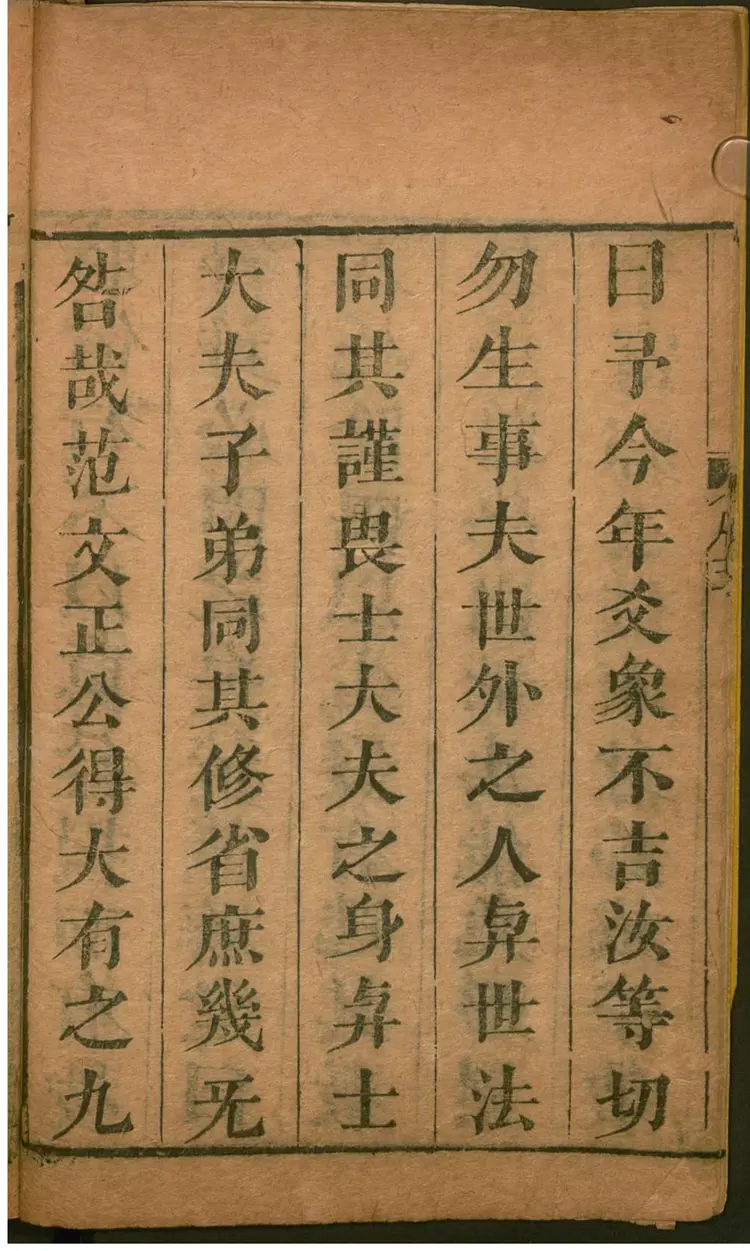 曰予今年爻象不吉汝等切
勿生事夫世外之人與世法
同其謹畏士大夫之身與士
大夫子弟同其修省庶幾无
咎哉范文正公得大有之九